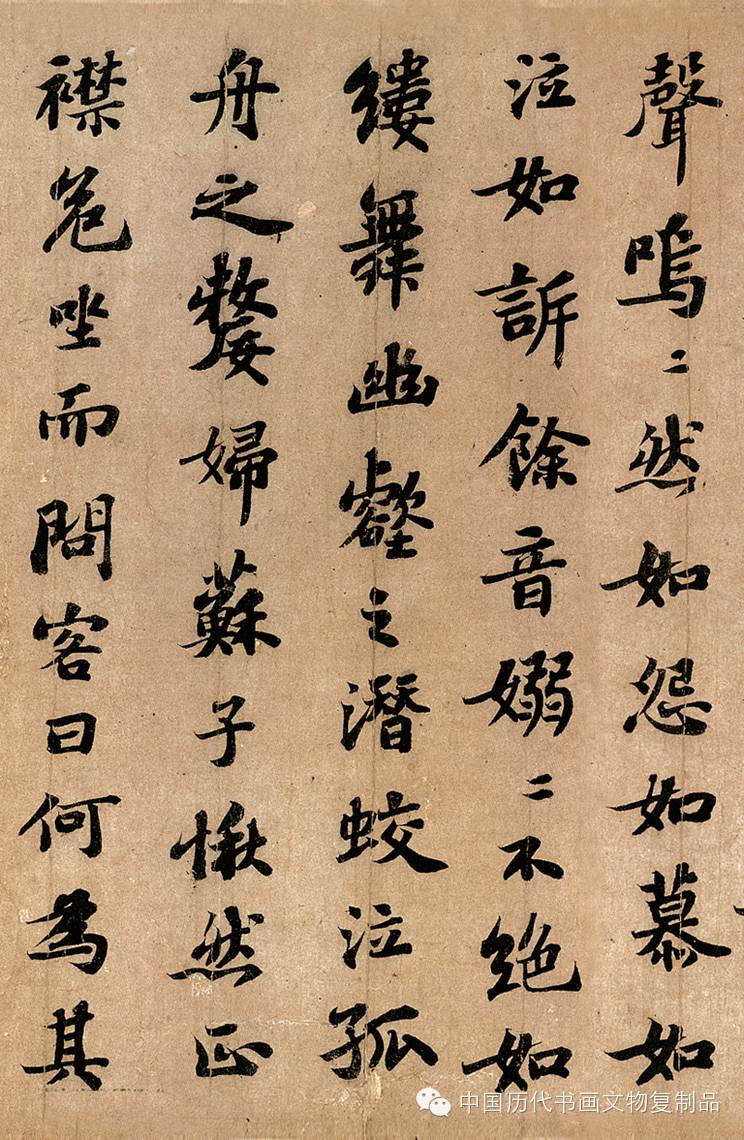 聲嗚〻然如怨如慕如
泣如訴餘音嫋〻不絶如
縷舞幽壑之潛蛟泣孤
舟之嫠婦蘇子愀然正
襟危坐而問客曰何為其
中国历代书画文物复制品